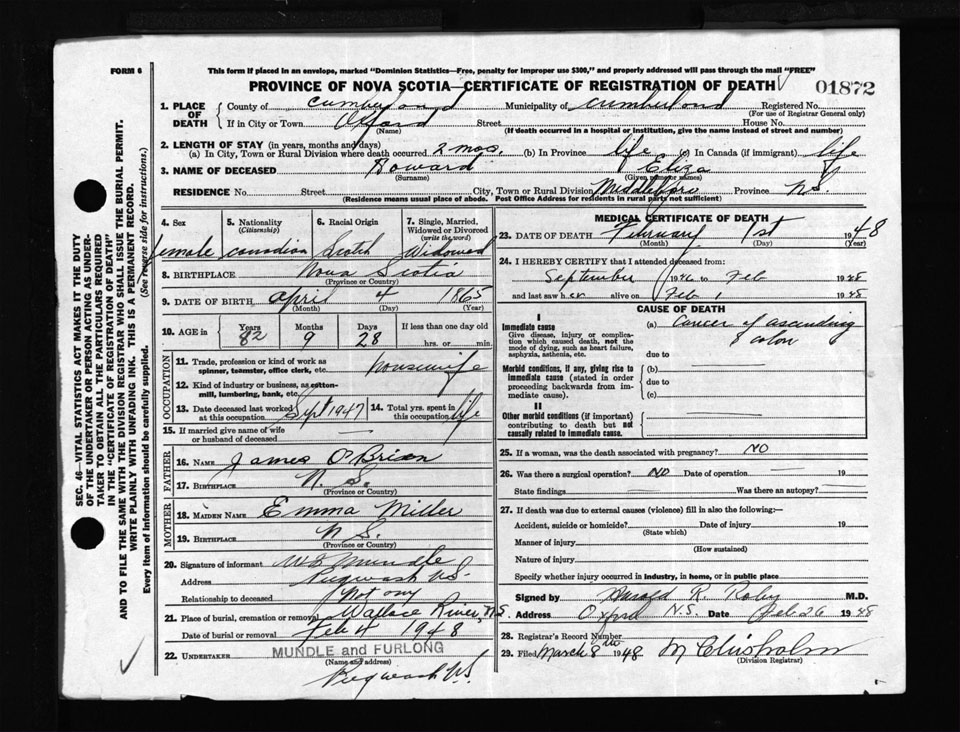 FORM 6
This form if placed in an envelope, marked "Dominion Statistics—Free, penalty for improper use $300," and properly addressed will pass through the mail "FREE"
PROVINCE OF NOVA SCOTIA—CERTIFICATE OF REGISTRATION OF DEATH
01872
1. PLACE OF DEATH { County of Cumberland Municipality of Cumberland Registered No.
(For use of Registrar General only)
If in City or Town Oxford Street House No.
(Name) (If death occurred in a hospital or institution, give the name instead of street and number)
2. LENGTH OF STAY (in years, months and days)
(a) In City, Town or Rural Division where death occurred 2 mos. (b) In Province life (c) In Canada (if immigrant) life
3. NAME OF DECEASED Howard Eliza
(Surname) (Given name or names)
RESIDENCE No. Street City, Town or Rural Division Middleboro Province N.S.
(Residence means usual place of abode. Post Office Address for residents in rural parts not sufficient)
4. Sex 5. Nationality (Citizenship) 6. Racial Origin 7. Single, Married, Widowed or Divorced (write the word)
Female Canadian Scotch Widowed
8. BIRTHPLACE Nova Scotia
(Province or Country)
9. DATE OF BIRTH April 4 1865
(Month) (Day) (Year)
10. AGE in Years Months Days If less than one day old
82 9 28 hrs. or min.
OCCUPATION
11. Trade, profession or kind of work as spinner, teamster, office clerk, etc. Housewife
12. Kind of industry or business, as cotton-mill, lumbering, bank, etc.
13. Date deceased last worked at this occupation Sept 1947 14. Total yrs. spent in this occupation life
15. If married give name of wife or husband of deceased —
FATHER
16. NAME James O'Brian
17. BIRTHPLACE N.S.
(Province or Country)
MOTHER
18. MAIDEN NAME Emma Miller
19. BIRTHPLACE N.S.
(Province or Country)
20. Signature of informant Mundle
Address Pugwash N.S.
Relationship to deceased Not any
21. Place of burial, cremation or removal Wallace River, N.S.
Date of burial or removal Feb 4 1948
22. UNDERTAKER MUNDLE and FURLONG
(Name and address)
Pugwash N.S.
MEDICAL CERTIFICATE OF DEATH
23. DATE OF DEATH February 1st 1948
(Month) (Day) (Year)
24. I HEREBY CERTIFY that I attended deceased from:
September 19 to Feb 1948
and last saw her alive on Feb 1 1948
CAUSE OF DEATH
I
Immediate cause (a) Cancer of ascending colon
Give disease, injury or complication which caused death, not the mode of dying, such as heart failure, asphyxia, asthenia, etc.
due to
Morbid conditions, if any, giving rise to immediate cause (stated in order proceeding backwards from immediate cause).
(b) —
due to
(c)
II
Other morbid conditions (if important) contributing to death but not causally related to immediate cause.
25. If a woman, was the death associated with pregnancy? NO
26. Was there a surgical operation? NO Date of operation — 19
State findings — Was there an autopsy? —
27. If death was due to external causes (violence) fill in also the following:—
Accident, suicide or homicide? Date of injury 19
(State which)
Manner of injury
(How sustained)
Nature of injury
Specify whether injury occurred in industry, in home, or in public place
Signed by Harold R. Roby M.D.
Address Oxford N.S. Date Feb 26 1948
28. Registrar's Record Number
29. Filed March 8th 1948 M Chisholm
(Division Registrar)
SEC. 46—VITAL STATISTICS ACT MAKES IT THE DUTY
OF THE UNDERTAKER OR PERSON ACTING AS UNDER-
TAKER TO OBTAIN ALL THE PARTICULARS REQUIRED
IN THE "CERTIFICATE OF REGISTRATION OF DEATH"
AND TO FILE THE SAME WITH THE DIVISION REGISTRAR WHO SHALL ISSUE THE BURIAL PERMIT.
WRITE PLAINLY WITH UNFADING INK. THIS IS A PERMANENT RECORD.
Every item of information should be carefully supplied. (See reverse side for instructions.)